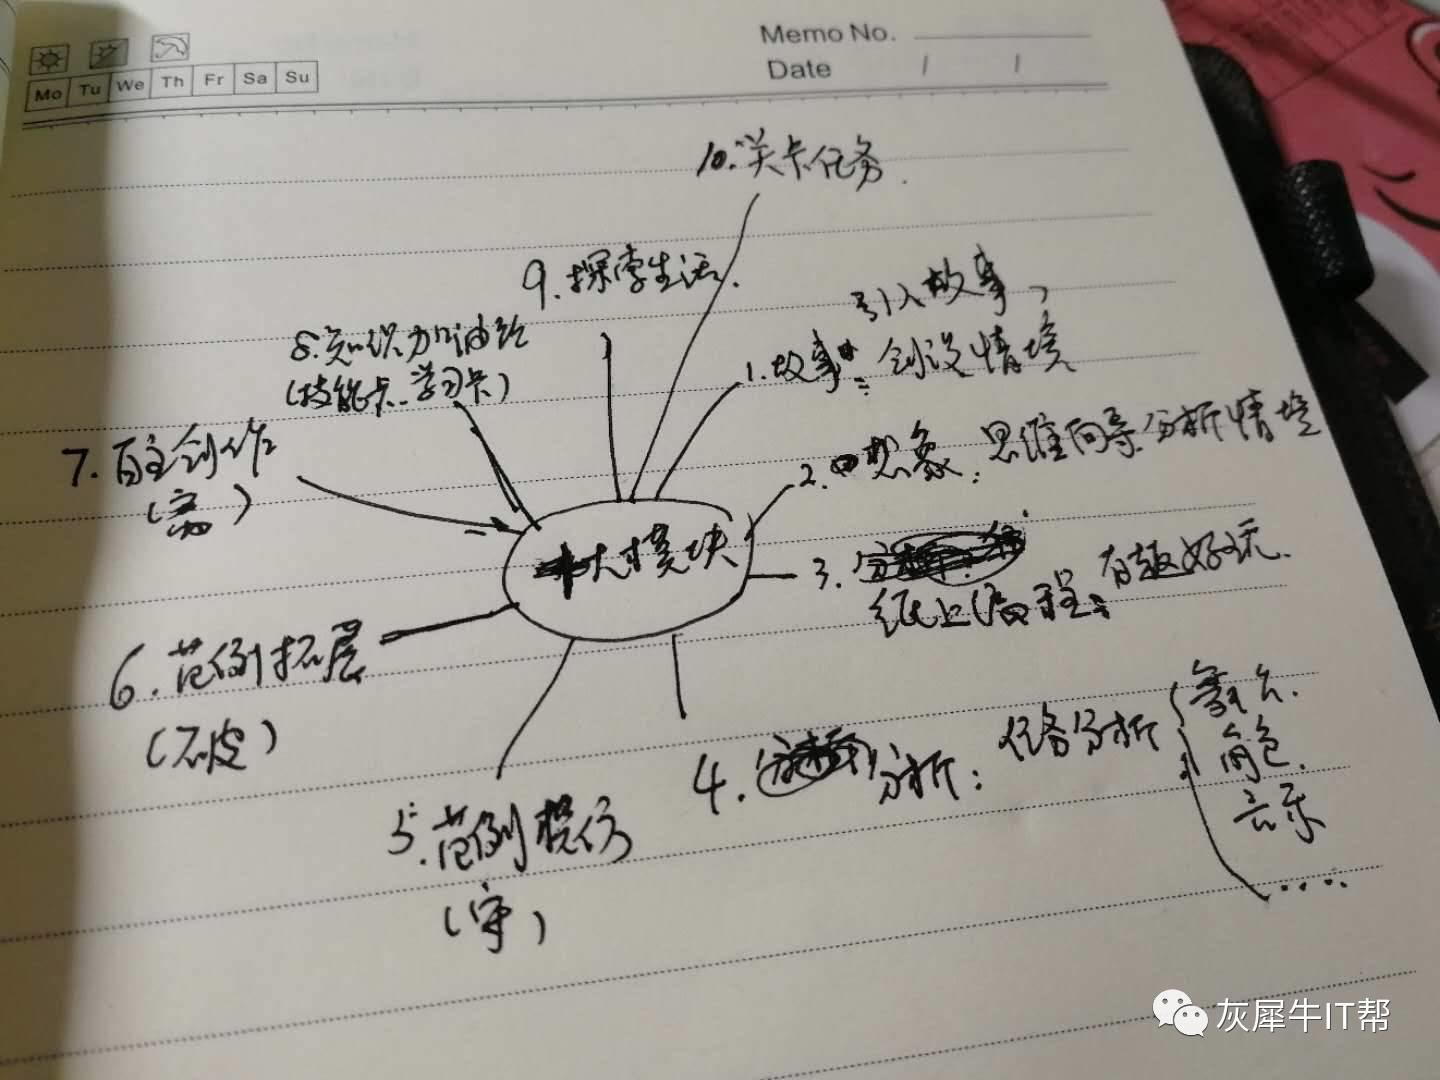 Memo No.
Date / /
Mo Tu We Th Fr Sa Su
10.关卡任务.
9.探索生活.
8.知识加油站
(技能卡.学习卡)
引入故事,
1.故事:创设情境
2.想象:思维向导.分析情境
7.自主创作
大模块
3.
纸上编程:有趣好玩.
6.范例拓展
(破)
4.分析:任务分析
舞台.
角色.
音乐
....
5.范例模仿
(守)
灰犀牛IT帮